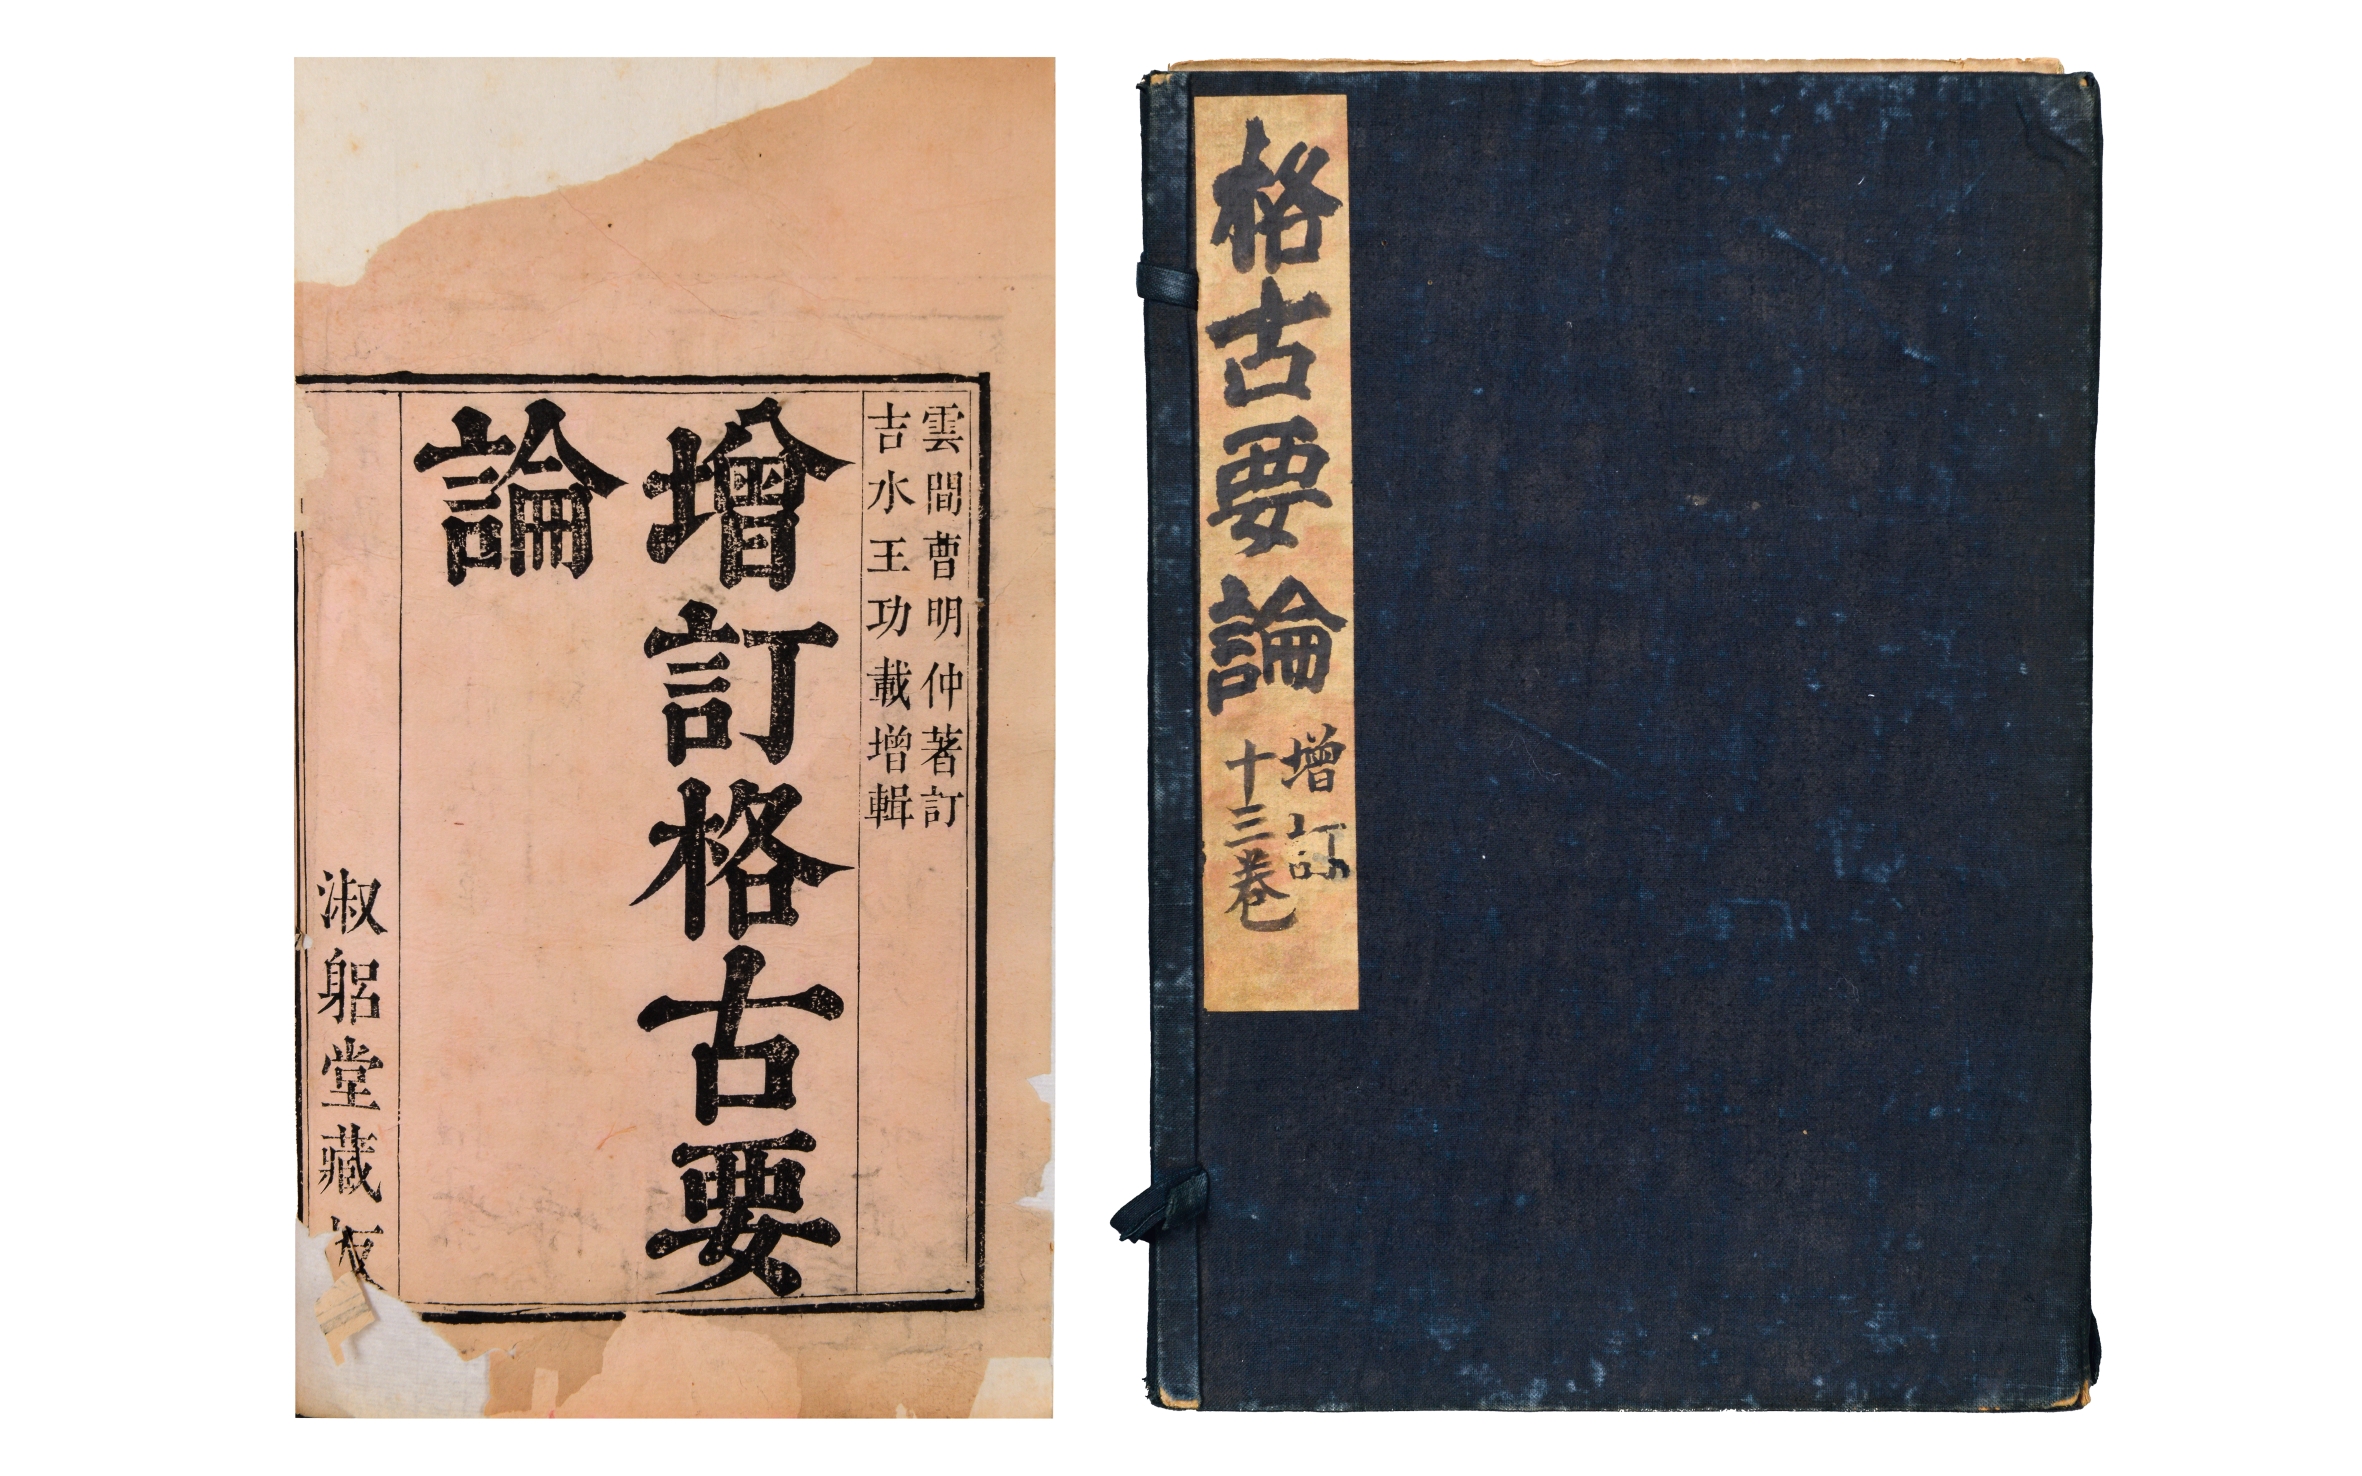 雲間曹明仲著訂
吉水王功載增輯
增訂格古要
論
淑躳堂藏板
格古要論
增訂
十三卷